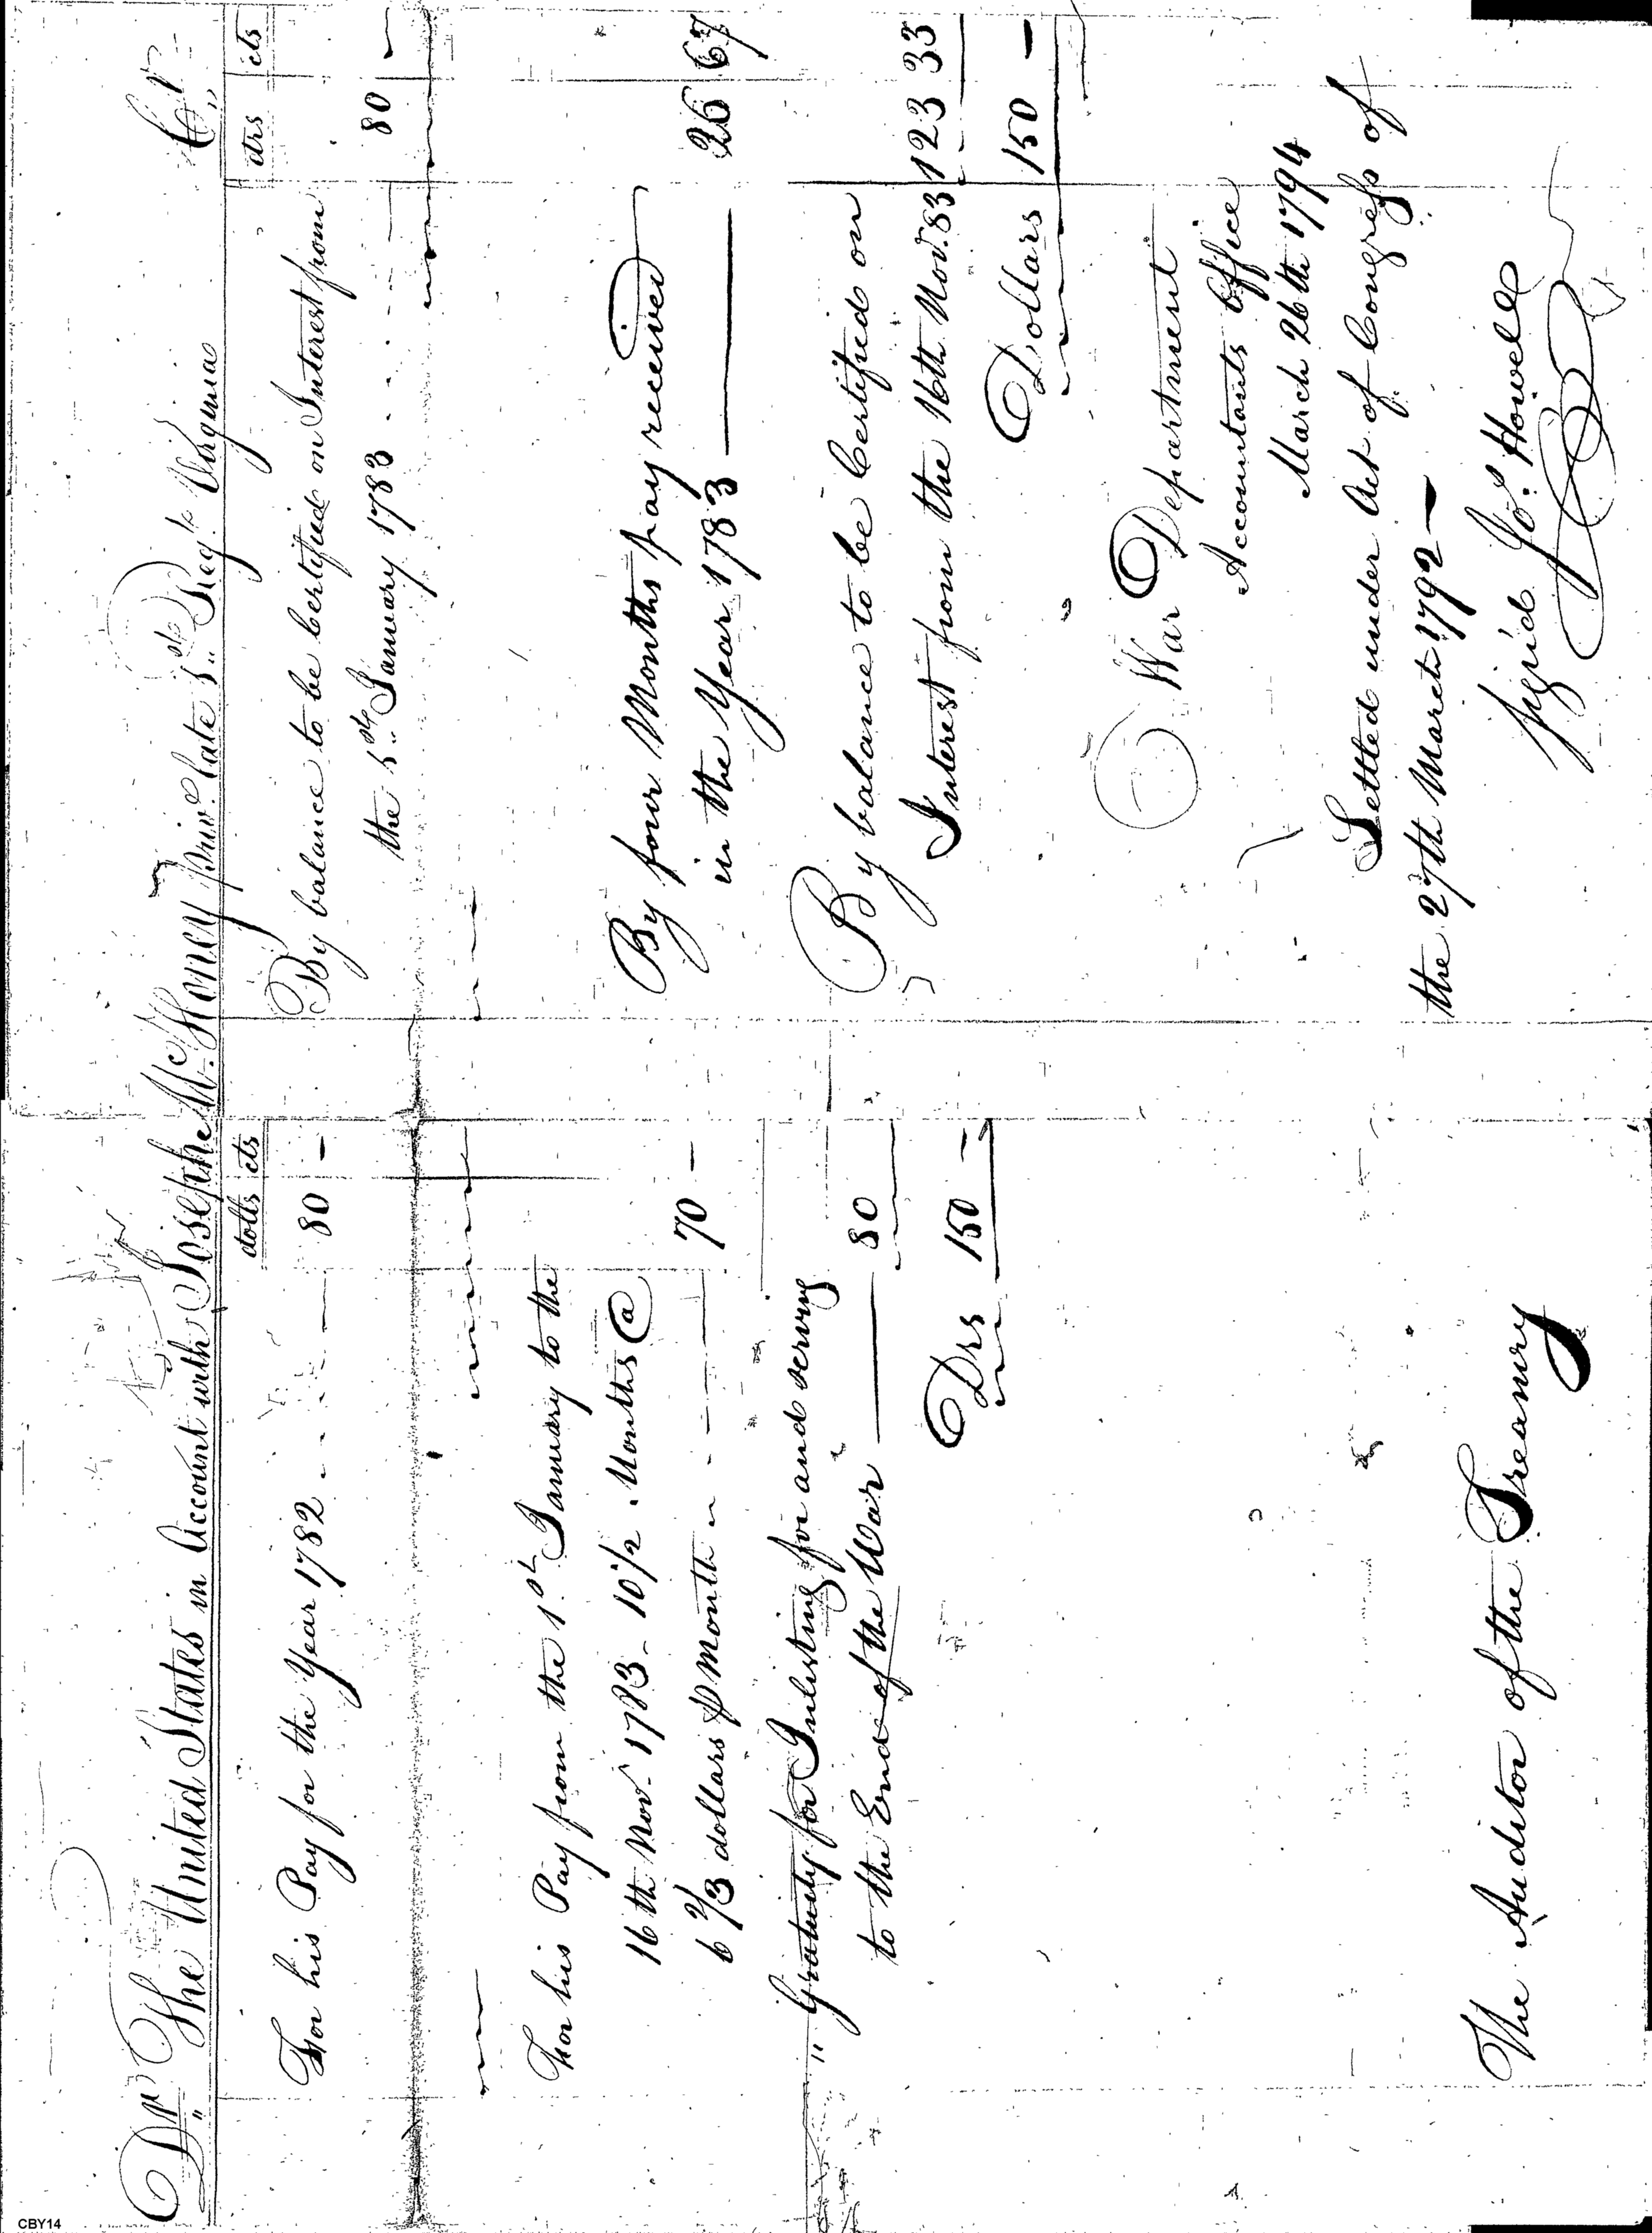 Dr The United States in Account with Joseph McHoney private late 5th Regt. Virginia Cr
dolls cts
For his Pay for the Year 1782 80 –
For his Pay from the 1st January to the
16th Novr 1783 – 10 1/2 Months @
6 2/3 dollars ⅌ Month 70 –
" Gratuity for Inlesting for and serving
to the End of the War 80
Drs 150 –
The Auditor of the Treasury
drs cts
By balance to be Certified on Interest from
the 5th January 1783 80 –
By four Months pay received
in the Year 1783 26 67
By balance to be Certified on
Interest from the 16th Novr. 83 123 33
Dollars 150 –
War Department
Accountants Office
March 26th 1794
Settled under Act of Congress of
the 27th March 1792 –
Signed Jos. Howell
CBY14